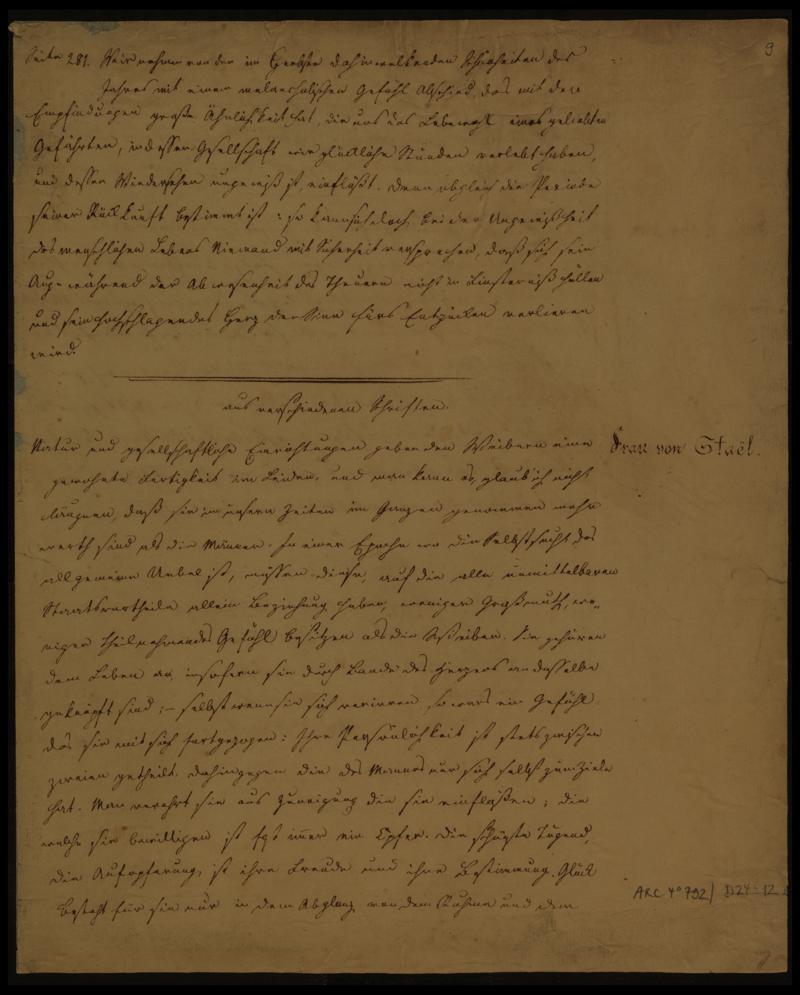 9
Seite 281. Wir nehmen von den im Herbste dahinwelkenden Schönheiten des
Jahres mit einem melancholischen Gefühl Abschied, das mit den
Empfindungen große Ähnlichkeit hat, die uns das Lebewohl eines geliebten
Gefährten, in dessen Gesellschaft wir glückliche Stunden verlebt haben,
und dessen Wiedersehen ungewiß ist, einflößt. Denn obgleich die Periode
seiner Rückkunft bestimmt ist: so kann sich doch bei der Ungewißheit
des menschlichen Lebens Niemand mit Sicherheit versprechen, daß sich sein
Auge während der Abwesenheit des Theuern nicht in Finsterniß hüllen
und sein hochschlagendes Herz den Sinn fürs Entzücken verlieren
wird.
aus verschiedenen Schriften.
Natur und gesellschaftliche Einrichtungen geben den Weibern eine
Frau von Staël.
gewohnte Fertigkeit im Leiden, und man kann es, glaub ich nicht
läugnen, daß sie in unsern Zeiten im Ganzen genommen mehr
werth sind als die Männer. In einer Epoche wo die Selbstsucht das
allgemeine Uebel ist, müssen diese, auf die alle unmittelbaren
Staatsvortheile allein Beziehung haben, weniger Großmuth, we-
niger theilnehmendes Gefühl besitzen als die Weiber. Sie gehören
dem Leben an, insofern sie durch Bande des Herzens an dasselbe
geknüpft sind; – selbst wenn sie sich verirren, so wars ein Gefühl
das sie mit sich fortgezogen: Ihre Persönlichkeit ist stets zwischen
zweien getheilt, dahingegen die des Mannes nur sich selbst zum Ziele
hat. Man verehrt sie aus Zuneigung die sie einflößen; die
welche sie bewilligen ist fast immer ein Opfer. Die schönste Tugend,
die Aufopferung, ist ihre Freude und ihre Bestimmung. Glück
besteht für sie nur in dem Abglanz von dem Ruhme und dem
ARC 4° 792/ D24-12